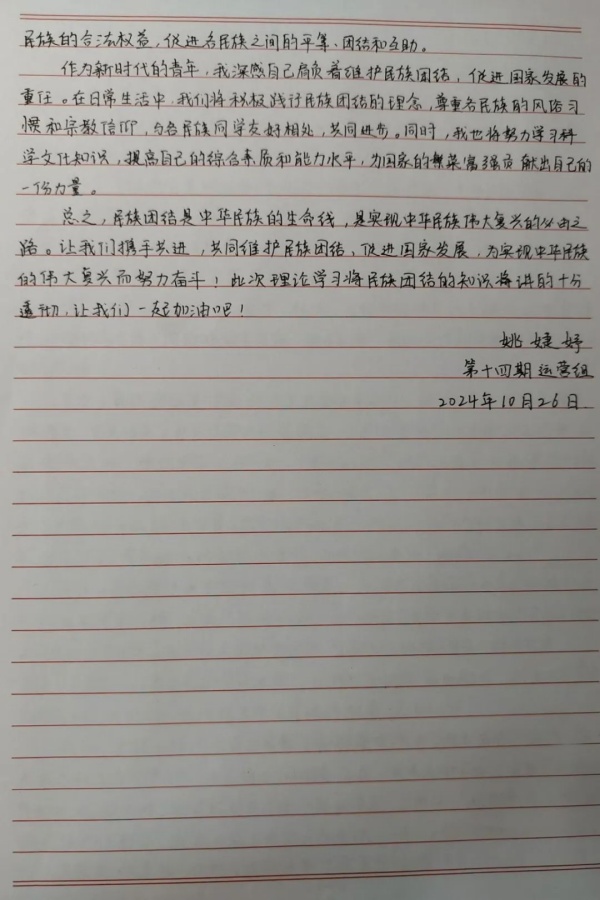 民族的合法权益，促进各民族之间的平等、团结和互助。
作为新时代的青年，我深感自己肩负着维护民族团结，促进国家发展的
重任。在日常生活中，我们将积极践行民族团结的理念，尊重各民族的风俗习
惯和宗教信仰，与各民族同学友好相处，共同进步。同时，我也将努力学习科
学文化知识，提高自己的综合素质和能力水平，为国家的繁荣富强贡献出自己的
一份力量。
总之，民族团结是中华民族的生命线，是实现中华民族伟大复兴的必由之
路。让我们携手共进，共同维护民族团结、促进国家发展，为实现中华民族
的伟大复兴而努力奋斗！此次理论学习将民族团结的知识海讲的十分
透彻，让我们一起加油吧！
姚婕妤
第十四期运营组
2024年10月26日